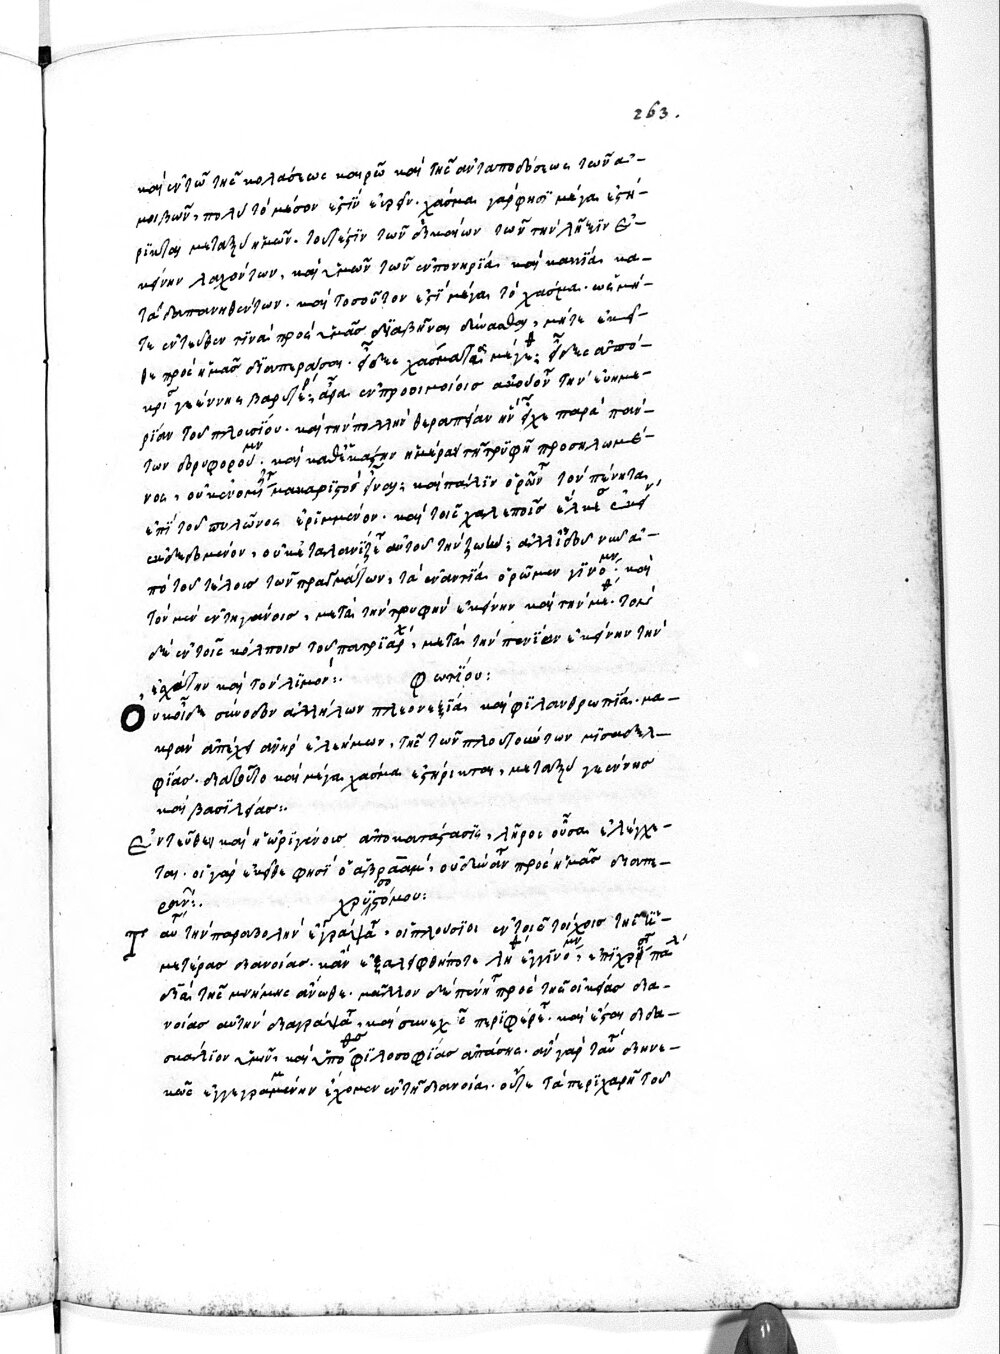 263.
καὶ ἐν τῷ τῆς κολάσεως καιρῷ καὶ τῆς ἀνταποδόσεως τῶν ἀ-
μοιβῶν, πολὺ τὸ μέσον ἐστὶν εὑρεῖν. χάσμα γάρ φησι μέγα ἐστή-
ρικται μεταξὺ ἡμῶν. τουτέστιν τῶν δικαίων τῶν τὴν λῆξιν ἐ-
κείνην λαχόντων, καὶ ὑμῶν τῶν ἐν πονηρίᾳ καὶ κακίᾳ κα-
ταδαπανηθέντων. καὶ τοσοῦτον ἐστὶ μέγα τὸ χάσμα. ὡς μή-
τε ἐντεῦθεν τινὰ πρὸς ὑμᾶς διαβῆναι δύνασθαι, μήτε ἐκεῖ-
θε πρὸς ἡμᾶς διαπεράσαι. εἶδες χάσματος μέγεθος; εἶδες ἀπό-
κρισιν γεέννης βαρυτέραν; ἆρα ἐν προοιμίοις ἀκούων τὴν εὐημε-
ρίαν τοῦ πλουσίου. καὶ τὴν πολλὴν θεραπείαν ἣν εἶχε παρὰ πάν-
των δορυφορούμενος. καὶ καθεκάστην ἡμέραν τῇ τρυφῇ προσηλωμέ-
νος, οὐκ ἐνόμιζες μακαριστὸν εἶναι; καὶ πάλιν ὁρῶν τὸν πένητα
ἐπὶ τοῦ πυλῶνος ἐριμμένον. καὶ τοῖς χαλεποῖς ἕλκεσιν ἐκεῖν
ἐκδεδομένον, οὐκ ἐταλάνιζες αὐτοῦ τὴν ζωὴν; ἀλλ' ἰδοὺ νῦν ἀ-
πὸ τοῦ τέλους τῶν πραγμάτων, τὰ ἐναντία ὁρῶμεν γινόμενα. καὶ
τὸν μὲν ἐν τηγάνοις, μετὰ τὴν τρυφὴν ἐκείνην καὶ τὴν μέθην. τὸν
δὲ ἐν τοῖς κόλποις τοῦ πατριάρχου, μετὰ τὴν πενίαν ἐκείνην τὴν
ἐσχάτην καὶ τὸν λιμόν:. Φωτίου:
Οὐκ οἶδε σύνοδον ἀλλήλων πλεονεξία καὶ φιλανθρωπία. μα-
κρὰν ἀπέχει ἀνὴρ ἐλεήμων, τῆς τῶν πλουτούντων μισαδελ-
φίας. διατοῦτο καὶ μέγα χάσμα ἐστήρικται, μεταξὺ γεέννης
καὶ βασιλείας:.
Ἐντεῦθεν καὶ ἡ ὠριγένους ἀποκατάστασις, λῆρος οὖσα ἐλέγχε-
ται. οἱ γὰρ ἐκεῖθε φησὶ ὁ ἀβραάμ, οὐ δύναν πρὸς ἡμᾶς διαπε-
ρᾶν:. χρυσοστόμου:
Ταύτην τὴν παραβολὴν ἐγράψατε, οἱ πλούσιοι ἐν τοῖς τοίχοις τῆς ἡ-
μετέρας διανοίας. κἂν ἐξαλειφθῇ ποτε λήθης ἐγγινομένης, ἐπίχρισον πάλιν
διὰ τῆς μνήμης ἄνωθεν. μᾶλλον δὲ πένητες πρὸς τῆς οἰκείας δια-
νοίας αὐτὴν διαγράψατε, καὶ συνεχῶς περιφέρετε. καὶ ἔσται διδα-
σκαλίον ὑμῖν, καὶ ὑπόθεσις φιλοσοφίας ἁπάσης. ἂν γὰρ ταύτην διηνε-
κῶς ἐγγεγραμμένην ἔχωμεν ἐν τῇ διανοίᾳ. οὔτε τὰ περιχαρῆ τοῦ